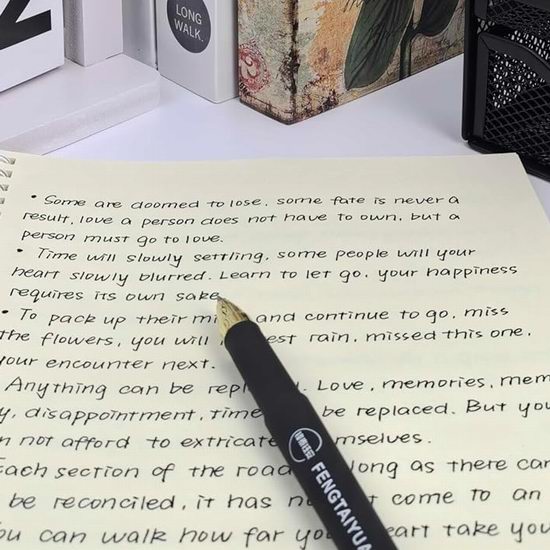 LONG
WALK.
• Some are doomed to lose, some fate is never a
result, love a person does not have to own, but a
person must go to love.
• Time will slowly settling, some people will your
heart slowly blurred. Learn to let go, your happiness
requires its own sake
• To pack up their and continue to go, miss
the flowers, you will rain, missed this one,
your encounter next.
Anything can be Love, memories,
disappointment, time be replaced. But you
not afford to extricate
Each section of the road long as there can
be reconciled, it has come to an
you can walk how far take you
FENGTAIYUAN